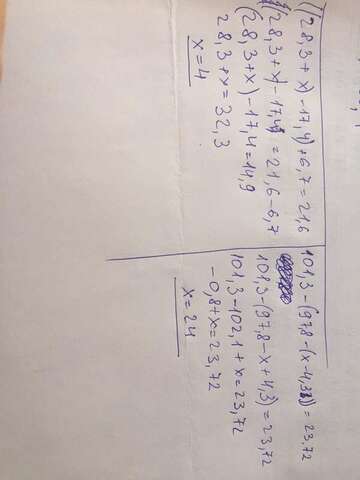 ((28,3+x)-17,4)+6,7=21,6
(28,3+x)-17,4=21,6-6,7
(28,3+x)-17,4=14,9
28,3+x=32,3
x=4
101,3-(97,8-(x-4,3))=23,72
101,3-(97,8-x+4,3)=23,72
101,3-102,1+x=23,72
-0,8+x=23,72
x=24